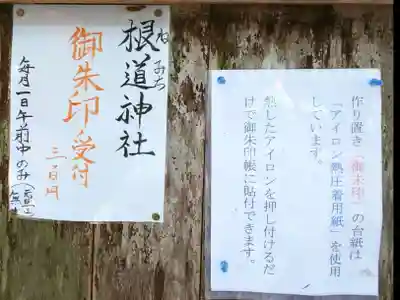 根道神社
ねみち
御朱印の受付
三百円
毎月一日午前中のみ
作り置き「御朱印」の台紙は
「アイロン熱圧着用紙」を使用
しています。
熱したアイロンを押し付けるだ
けで御朱印帳に貼付できます。